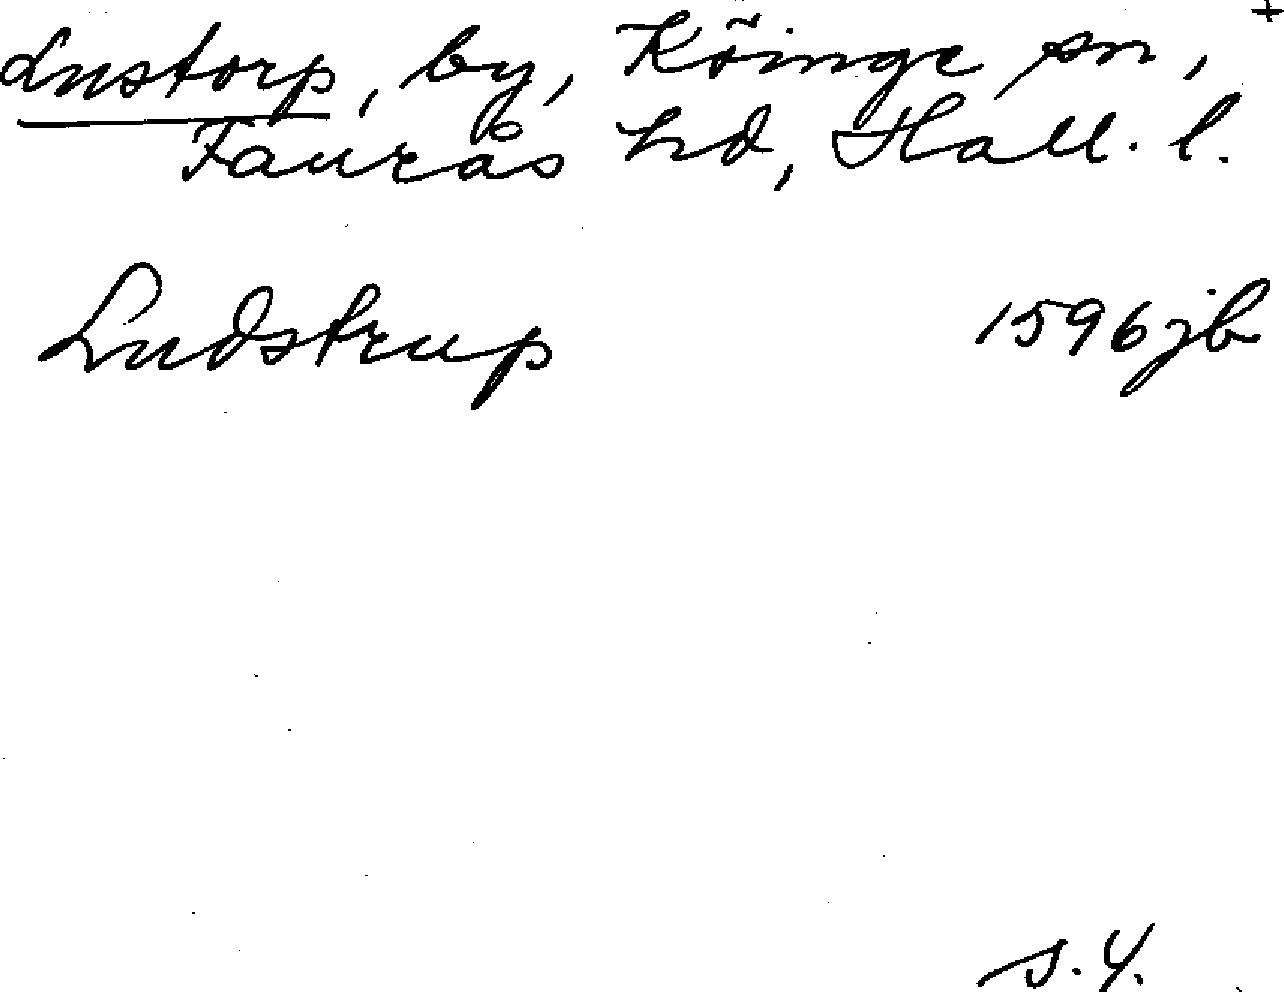 Lustorp, by, Köinge sn, +
Faurås hd, Hall. l.
Ludstrup 1596 jb
s. 4.